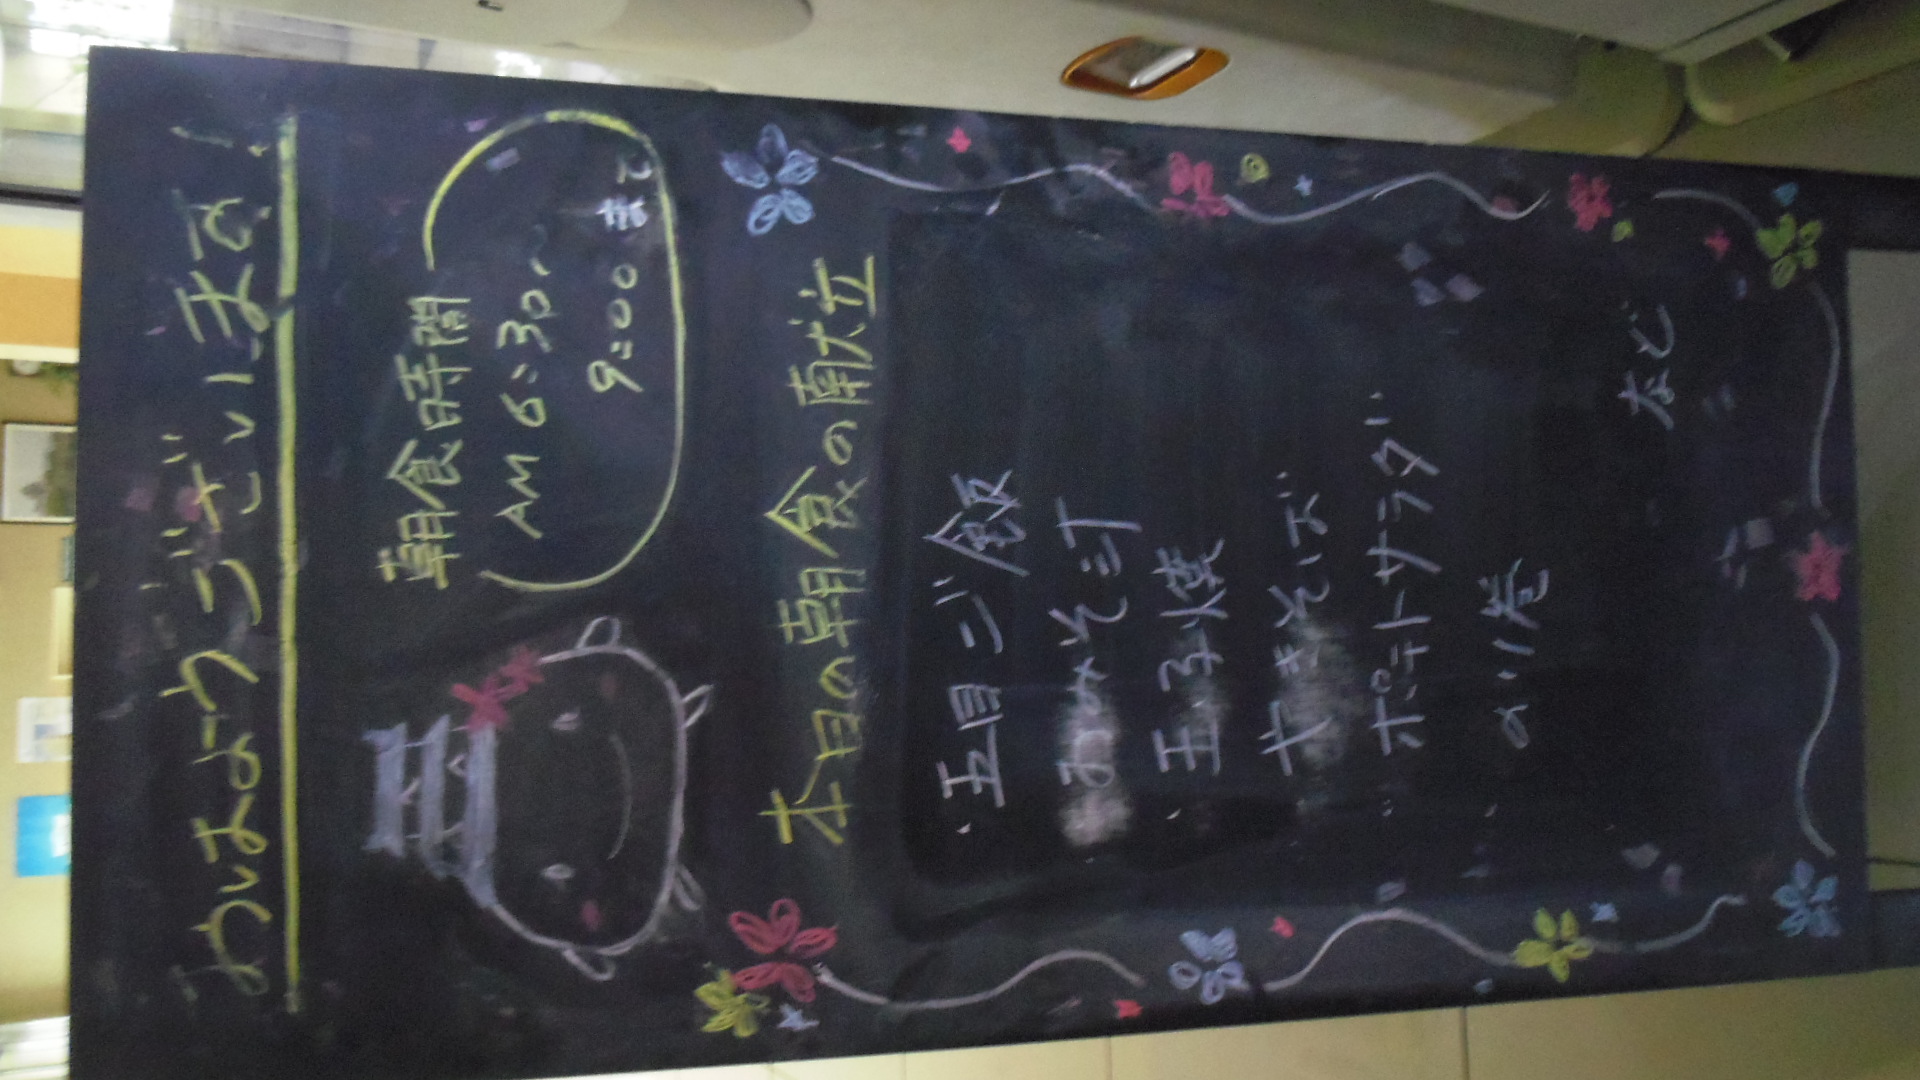 おはようございます!
朝食時間
AM 6:30〜
9:00まで
本日の朝食の献立
・五目ご飯
おみそ汁
・玉子焼
やきそば
・ポテトサラダ
・のり巻
など